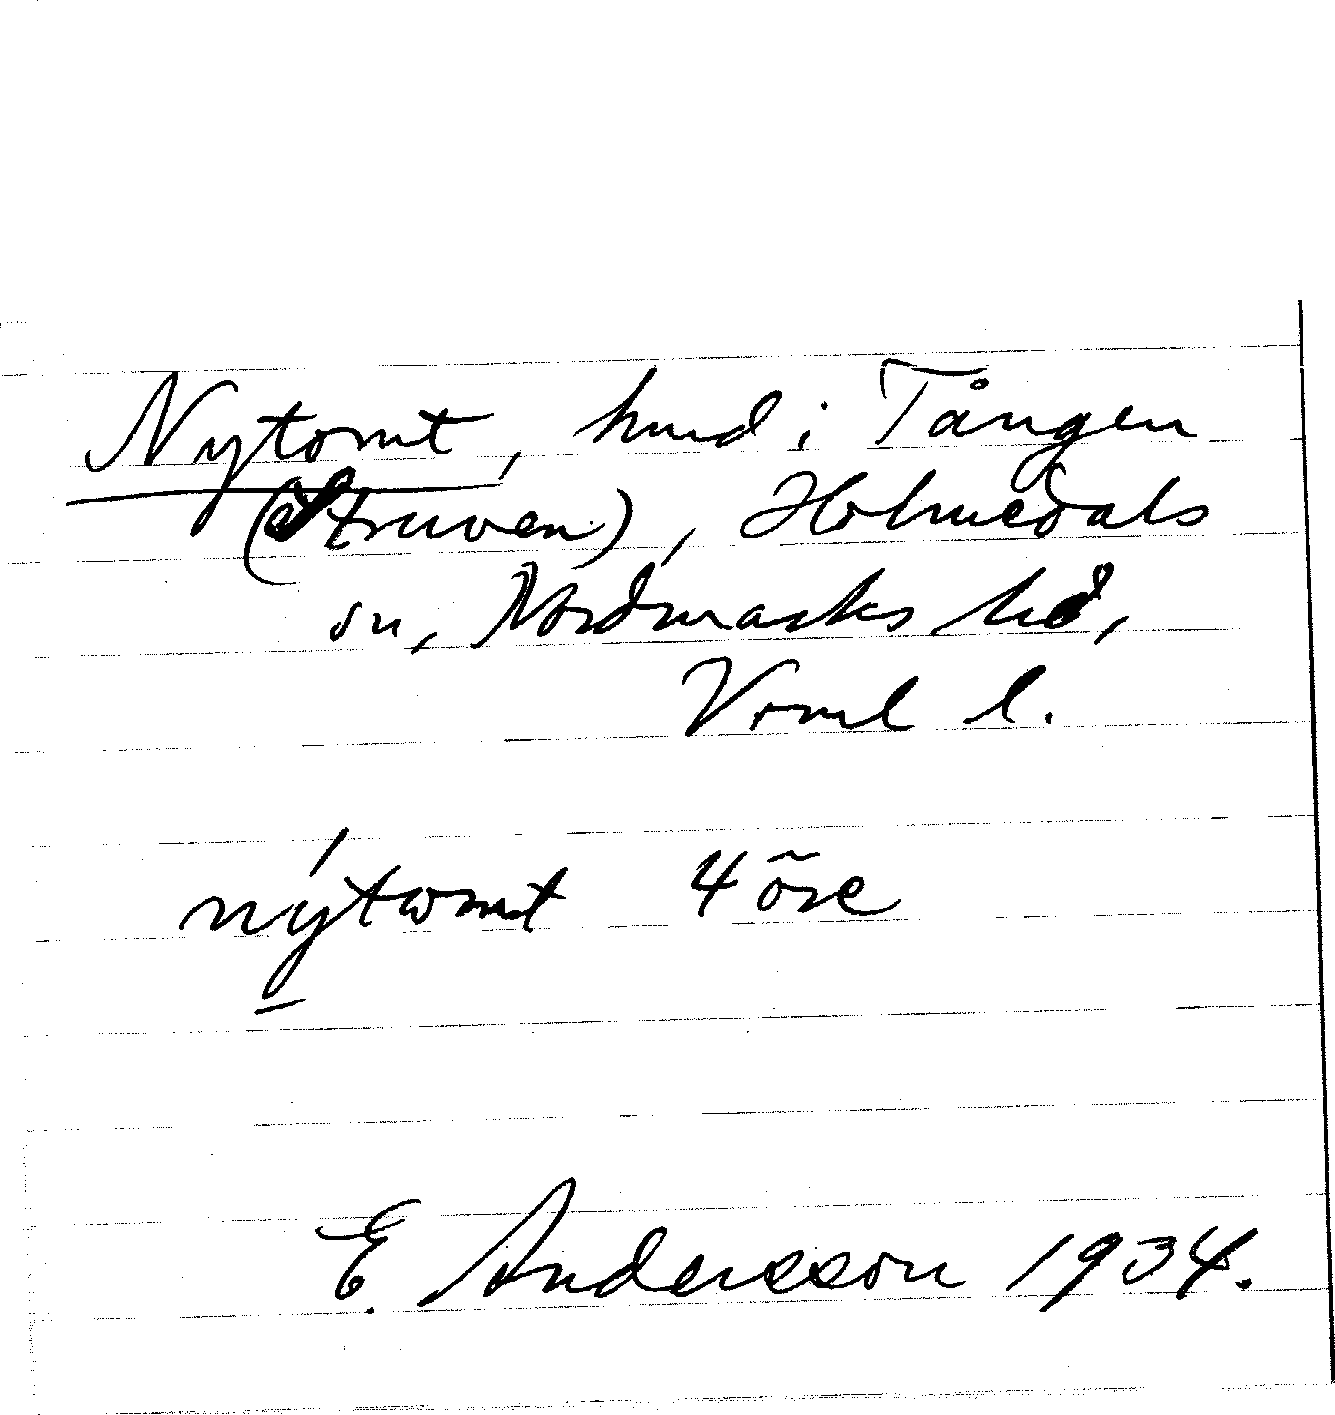 Nytomt, hmd i Tången
(Struven), Holmedals
sn, Nordmarks hd,
Vrml l.
nýtomt 4 öre
E. Andersson 1934.